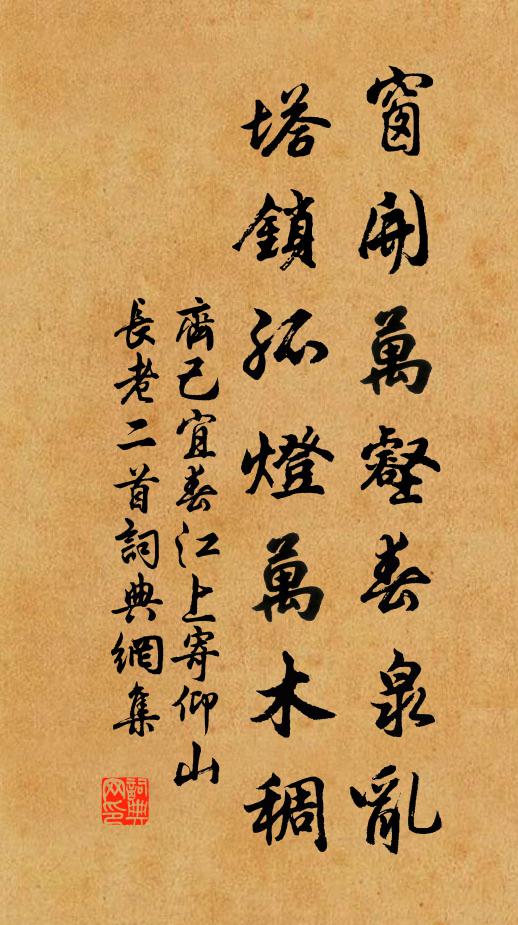 窗開萬壑春泉亂
塔鎖孤燈萬木稠
齊己宜春江上寄仰山
長老二首詞典網集
詞典
网印